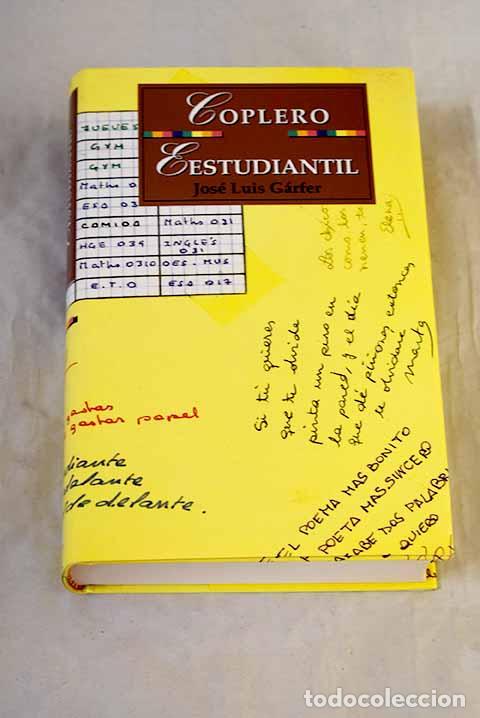 COPLERO
EESTUDIANTIL
José Luis Gárfer
JUEVES
GYM
GYM
Maths 0
ESO 03
COMIDA
Maths 031
HGE 039
INGLES
031
Maths 0310
DES. MUS
E.T.O
ESO 017
Los chicos
como los
Elena
Si tú quieres
que te olvide
pinta un pino en
la pared, y el día
que dé piñones entonces
te olvidaré
Marta
gastas
gastar papel
diante
delante
de delante.
EL POEMA MAS BONITO
POETA MAS SINCERO
CABE DOS PALABR
QUIERO
todocoleccion